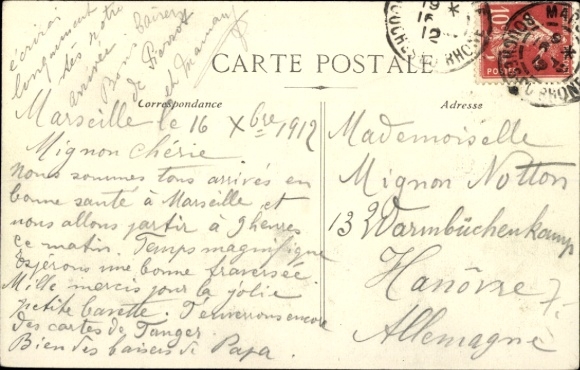 écrirai
longuement
dès notre
arrivée. Bons baisers
de Pierrot
et Maman
CARTE POSTALE
Correspondance
Adresse
Marseille le 16 Xbre 1912
Mignon chérie
Nous sommes tous arrivés en
bonne santé à Marseille et
nous allons partir à 9 heures
ce matin. Temps magnifique
Espérons une bonne traversée.
Mille mercis pour la jolie
petite T'enverrons encore
des cartes de Tanger.
Bien des baisers de Papa.
Mademoiselle
Mignon Notton
13 Warmbüchenkamp
Hanôvre
Allemagne
16
12
BOUCHES DU RHONE
10
POSTES